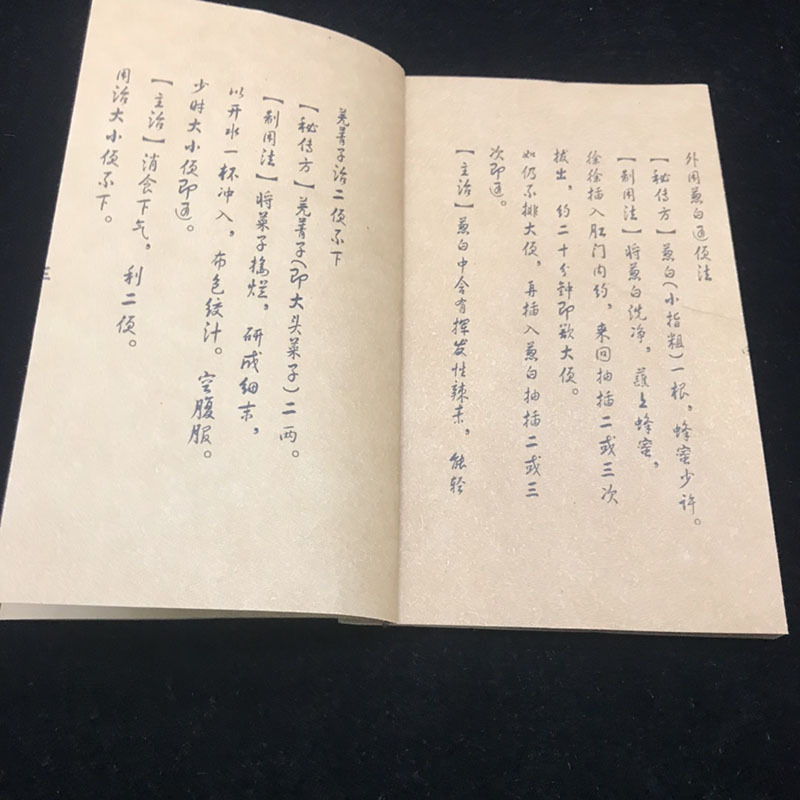 外用葱白通便法
【秘传方】葱白(小指粗)一根，蜂蜜少许。
【制用法】将葱白洗净，蘸上蜂蜜，
徐徐插入肛门内约，来回抽插二或三次
拔出，约二十分钟即欲大便。
如仍不排大便，再插入葱白抽插二或三
次即通。
【主治】葱白中含有挥发性辣素，能轻
芜菁子治二便不下
【秘传方】芜菁子(即大头菜子)二两。
【制用法】将菜子捣烂，研成细末，
以开水一杯冲入，布包绞汁。空腹服。
少时大小便即通。
【主治】消食下气，利二便。
用治大小便不下。
三